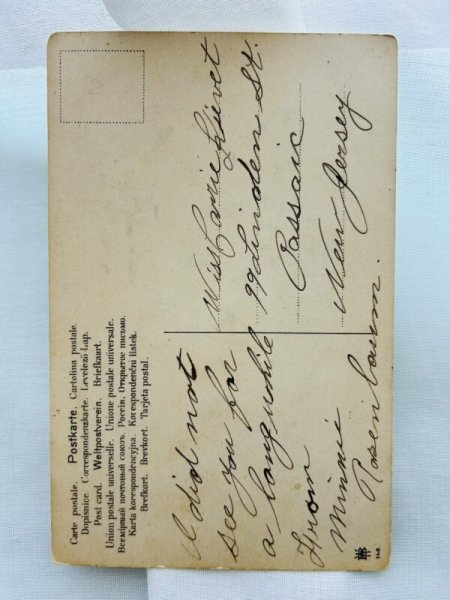 Carte postale. Postkarte. Cartolina postale.
Dopisnice. Correspondenzkarte. Levelező Lap.
Post card. Weltpostverein. Briefkaart.
Union postale universelle. Unione postale universale.
Всемірный почтовый союзъ. Россія. Открытое письмо.
Karta korespondencyjna. Korespondenční listek.
Brefkort. Brevkort. Tarjeta postal.
I did not
see you for
a long while
From
Minnie
Rosenbaum.
Miss Carrie
99 Linden St.
Passaic
New Jersey